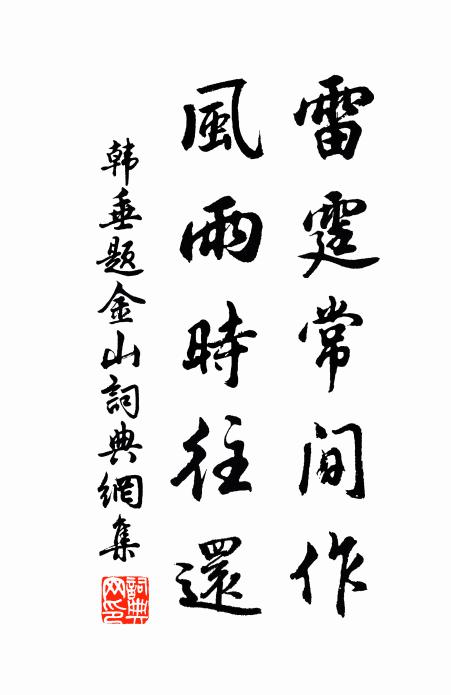 雷霆常間作
風雨時往還
韩垂题金山詞典網集
詞典网印